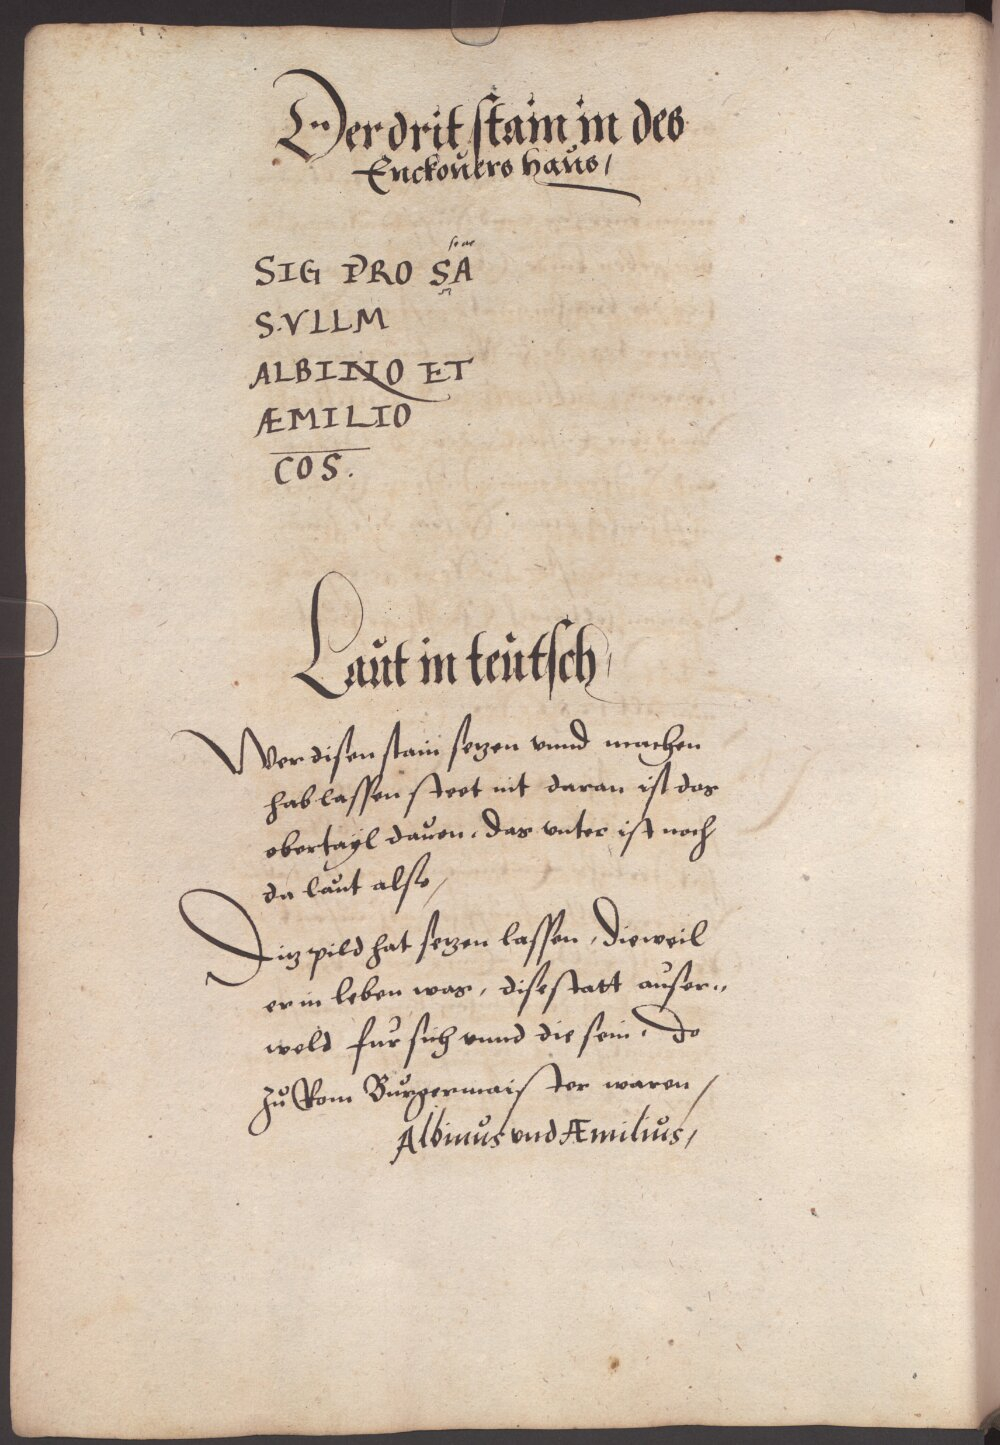 Der drit stain in des
Enckouers haus /
SIG PRO SA
S·VLLM
ALBINO ET
ÆMILIO
COS.
Laut in teutsch /
Wer disen stain setzen vnnd machen
hab lassen steet nit daran ist das
obertayl dauon. Das vnter ist noch
da laut also /
Ditz pild hat setzen lassen, Dieweil
er in leben was, dise statt auser„
weld fur sich vnnd die sein. Do
zu Rom Burgermaister waren /
Albinus vnd Æmilius /